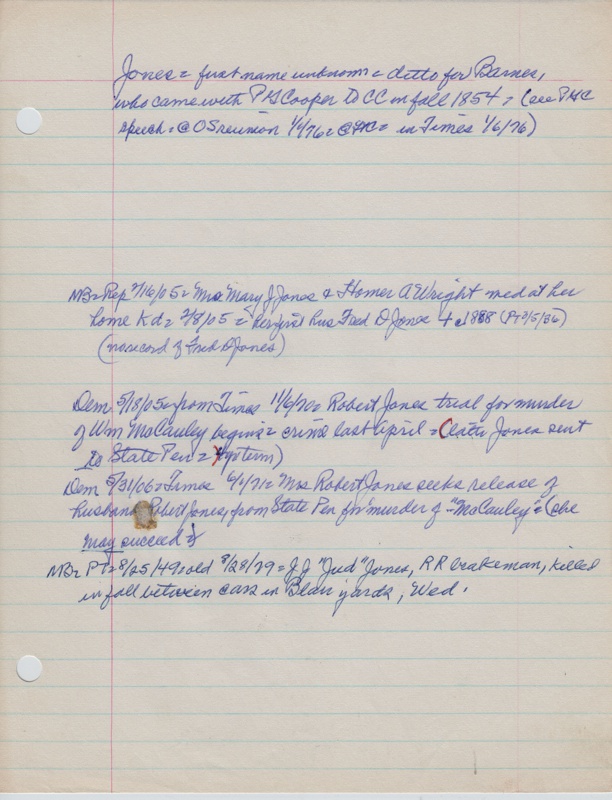 Jones = first name unknown = ditto for Barnes,
who came with P G Cooper to CC in fall 1854 = (see PGC
speech = @ OS reunion 1/4/76 = @ = in Times 1/6/76)
MB = Rep 2/16/05 = Mrs Mary J Jones & Homer A Wright med at her
home Kd = 2/8/05 = her first hus Fred D Jones + c1888 (PT 3/5/36)
(no record of Fred D Jones)
Dem 5/18/05 = from Times 11/6/70 = Robert Jones trial for murder
of Wm McCauley begins = crime last April = (Later Jones sent
to State Pen = term)
Dem 5/31/06 = Times 6/1/71 = Mrs Robert Jones seeks release of
husband Robert Jones, from State Pen for murder of "McCauley" = (she
may succeed =)
MB = PT = 8/25/49 = old 8/28/79 = J J "Jud" Jones, RR brakeman, killed
in fall between cars in Blair yards, Wed.